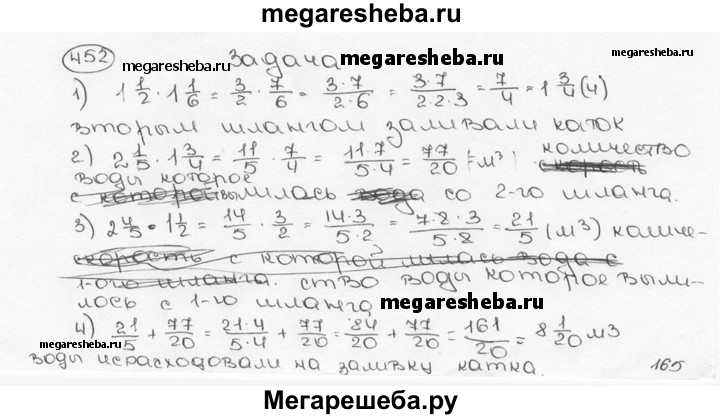 megaresheba.ru
452 задача megaresheba.ru
megaresheba.ru
1) 1 1/2 · 1 1/6 = 3/2 · 7/6 = 3·7/2·6 = 3·7/2·2·3 = 7/4 = 1 3/4 (ч)
вторым шлангом заливали каток
2) 2 1/5 · 1 3/4 = 11/5 · 7/4 = 11·7/5·4 = 77/20 (м³) количество
воды которое
вылилась со 2-го шланга.
3) 2 4/5 · 1 1/2 = 14/5 · 3/2 = 14·3/5·2 = 7·2·3/5·2 = 21/5 (м³) количе-
скорость с которой лилась вода с
1-ого шланга. ство воды которое выли-
лось с 1-го шланга
megaresheba.ru
4) 21/5 + 77/20 = 21·4/5·4 + 77/20 = 84/20 + 77/20 = 161/20 = 8 1/20 м3
воды израсходовали на заливку катка. 165
Мегарешеба.ру